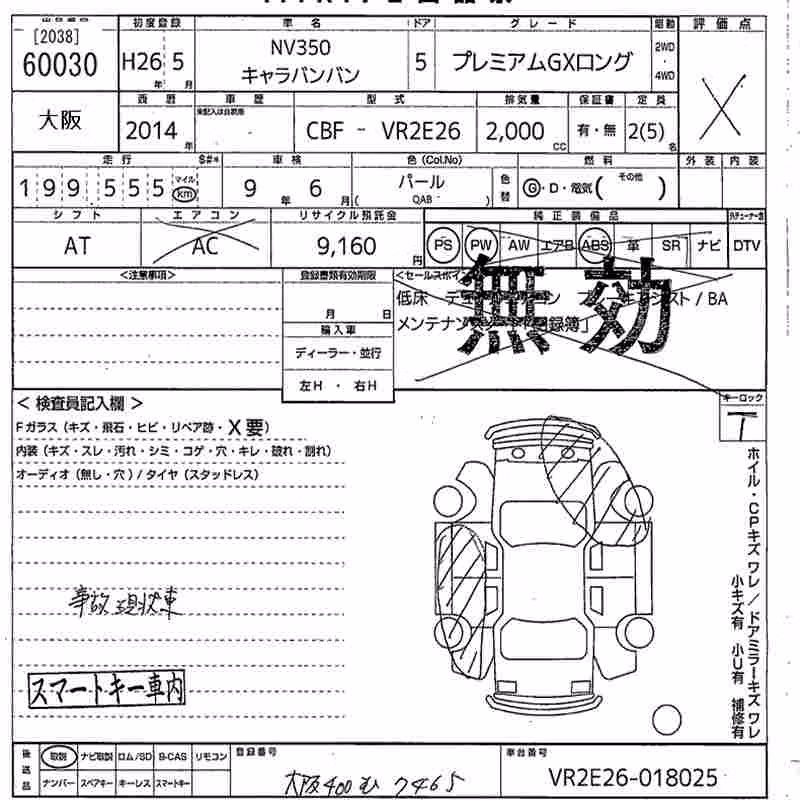 初度登録 車名 ドア グレード 駆動 評価点
[2038]
60030
H26 5 年 月
NV350
キャラバンバン
5
プレミアムGXロング
2WD
・
4WD
大阪
西暦 車歴 型式 排気量 保証書 定員
未記入は自家用
2014 年
CBF - VR2E26
2,000 CC
有・無
2(5) 名
走行 S#* 車検 色(Col.No) 燃料 外装 内装
199555 マイル km
9 年 6 月
パール
( QAB )
色替
G・D・電気( その他 )
シフト エアコン リサイクル預託金 純正装備品
AT AC 9,160 円
PS PW AW エアB ABS 革 SR ナビ DTV
<注意事項>
登録書類有効期限
月 日
輸入車
ディーラー・並行
左H ・ 右H
無効
メンテナンス
< 検査員記入欄 >
キーロック
Fガラス(キズ・飛石・ヒビ・リペア跡・X要)
内装(キズ・スレ・汚れ・シミ・コゲ・穴・キレ・破れ・割れ)
オーディオ(無し・穴)/タイヤ(スタッドレス)
ホイル・CPキズ ワレ/ドアミラーキズ ワレ
小キズ有 小U有 補修有
事故現状車
スマートキー車内
後送品
取説 ナビ取説 ロム/SD B-CAS リモコン
ナンバー スペアキー キーレス スマートキー
登録番号
大阪400 む 7465
車台番号
VR2E26-018025